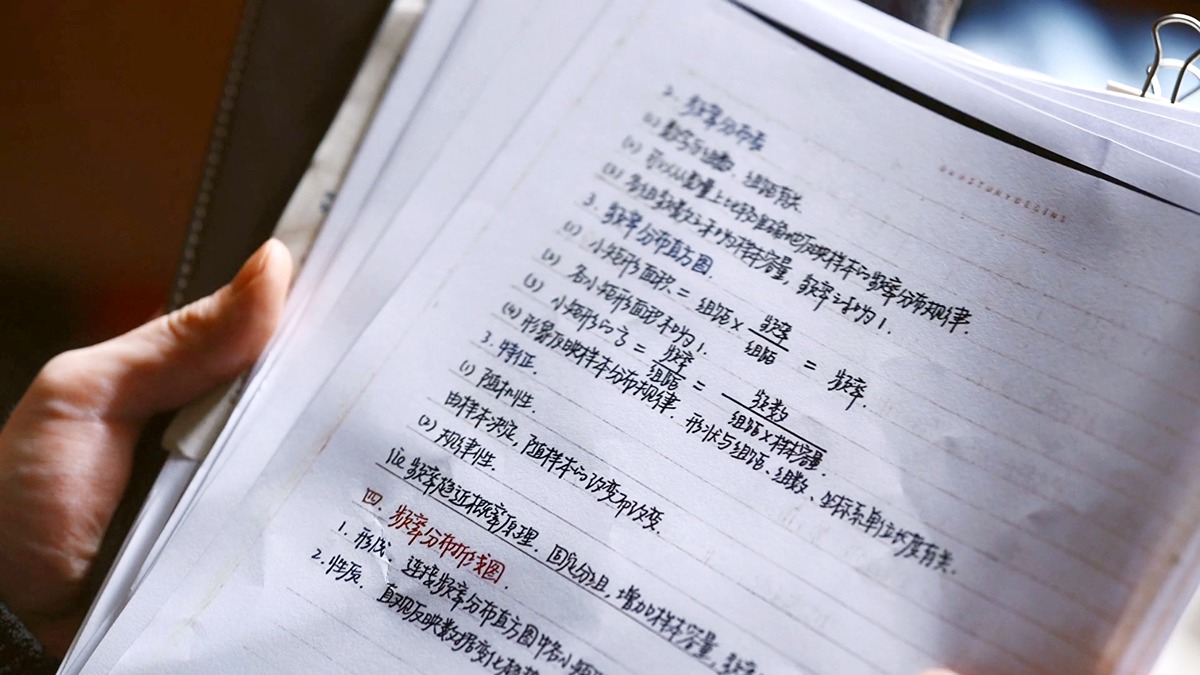 2. 频率分布表
(1) 数字与组数、组距有关.
(2) 可以从数量上比较准确地反映样本的频率分布规律.
(3) 各组频数之和为样本容量, 频率之和为1.
3. 频率分布直方图.
(1) 小矩形面积 = 组距 × 频率/组距 = 频率.
(2) 各小矩形面积和为1.
(3) 小矩形的高 = 频率/组距 = 频数/组距×样本容量.
(4) 形象反映样本分布规律. 形状与组距、组数、坐标系单位长度有关.
3. 特征.
(1) 随机性.
由样本决定, 随样本的改变而改变.
(2) 规律性.
频率趋近概率原理. 固定分组, 增加样本容量, 频率
四. 频率分布折线图.
1. 形成. 连接频率分布直方图中各小矩
2. 性质. 直观反映数据变化趋势